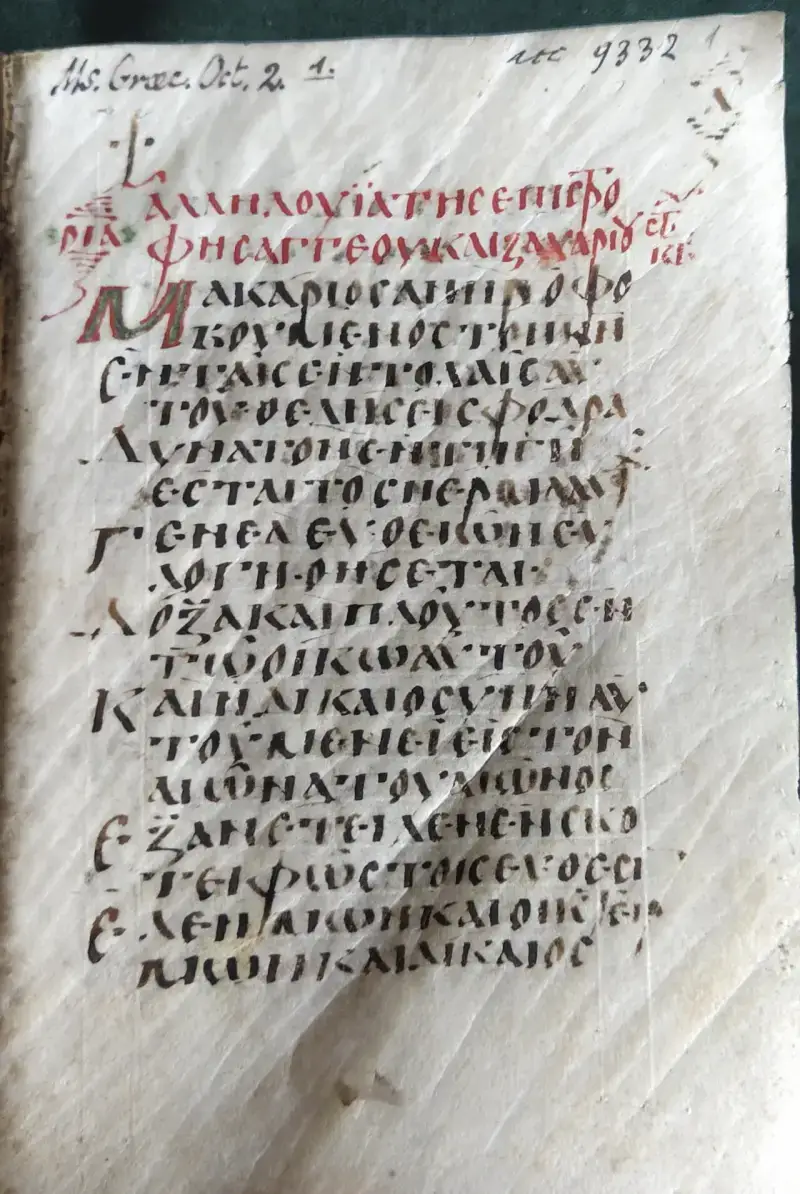 Ms. Græc. Oct. 2. 1.
acc 9332
ΑΛΛΗΛΟΥΪΑΤΗСΕΠΙСΤΡΟ
ΡΙΑ ΦΗСΑΓΓΕΟΥΚΑΙΖΑΧΑΡΙΟΥ
ΜΑΚΑΡΙΟСΑΝΗΡΟΦΟ
ΒΟΥΜΕΝΟСΤΟΝΚΝ
ΕΝΤΑΙСΕΝΤΟΛΑΙСΑΥ
ΤΟΥΘΕΛΗСΕΙСΦΟΔΡΑ
ΔΥΝΑΤΟΝΕΝΤΗΓΗ
ΕСΤΑΙΤΟСΠΕΡΜΑΑΥΤ
ΓΕΝΕΑΕΥΘΕΙΩΝΕΥ
ΛΟΓΗΘΗСΕΤΑΙ·
ΔΟΞΑΚΑΙΠΛΟΥΤΟСΕΝ
ΤΩΟΙΚΩΑΥΤΟΥ
ΚΑΙΗΔΙΚΑΙΟСΥΝΗΑΥ
ΤΟΥΜΕΝΕΙΕΙСΤΟΝ
ΑΙΩΝΑΤΟΥΑΙΩΝΟС
ΕΞΑΝΕΤΕΙΛΕΝΕΝСΚΟ
ΤΕΙΦΩСΤΟΙСΕΥΘΕСΙ
ΕΛΕΗΜΩΝΚΑΙΟΙΚΤΕΙΡ
ΜΩΝΚΑΙΔΙΚΑΙΟС